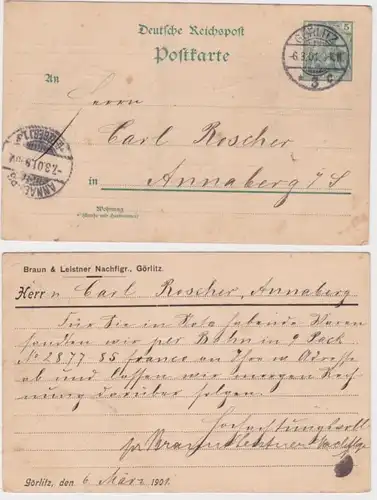 Deutsche Reichspost
Postkarte
5
GÖRLITZ
-6.3.01.
3 c
An
Herrn
Carl Roscher
in Annaberg i/S
-7.3.01.
Wohnung
(Straße und Hausnummer)
Braun & Leistner Nachflgr., Görlitz.
Herrn Carl Roscher, Annaberg
Für Sie in Nota habende Waren
sandten wir per Bahn in 9 Pack
No 2877 85 franco an Ihre w. Adresse
ab und lassen wir morgen Rech
nung darüber folgen.
Hochachtungsvoll
Braun & Leistner Nachflgr
Görlitz, den 6 März 1901.